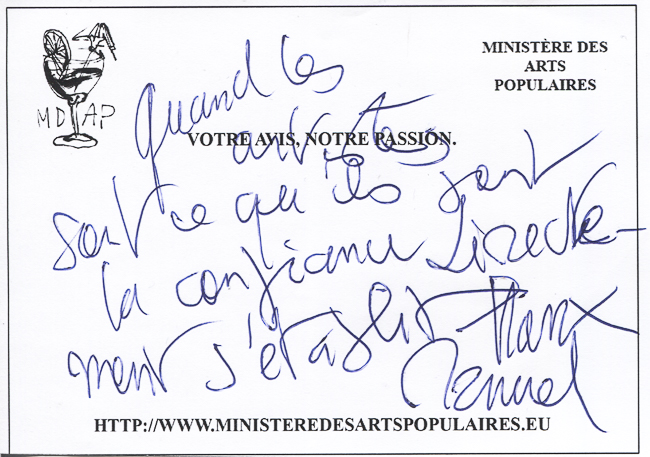 MINISTÈRE DES
ARTS
POPULAIRES
MD AP
VOTRE AVIS, NOTRE PASSION.
Quand les
artistes
sont ce qu'ils sont
la confiance directe-
ment s'établit
HTTP://WWW.MINISTEREDESARTSPOPULAIRES.EU